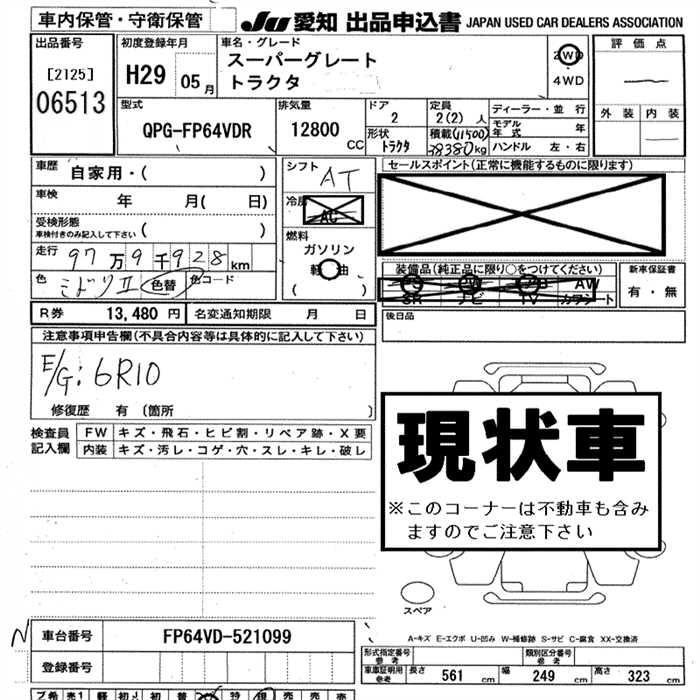 車内保管・守衛保管
JU 愛知 出品申込書 JAPAN USED CAR DEALERS ASSOCIATION
出品番号
[2125]
06513
初度登録年月
H29 05 月
車名・グレード
スーパーグレート
トラクタ
2WD
4WD
評価点
外装 内装
型式
QPG-FP64VDR
排気量
12800 CC
ドア
2
形状
トラクタ
定員
2(2) 人
積載 (11500)
38380 kg
ディーラー・並行
モデル年式 年
ハンドル 左・右
車歴
自家用・( )
車検
年 月( 日)
受検形態
車検付きのみ記入して下さい
( )
走行 97万9千928 km
色 ミドリII 色替 色コード
シフト
AT
冷房
AC
燃料
ガソリン
軽油
( )
セールスポイント(正常に機能するものに限ります)
装備品(純正品に限り○をつけてください)
PS PW AB AW
SR ナビ TV カワシート
新車保証書
有・無
R券 13,480 円 名変通知期限 月 日
後日品
注意事項申告欄(不具合内容等は具体的に記入して下さい)
E/G: 6R10
修復歴 有〔箇所 〕
検査員記入欄
FW キズ・飛石・ヒビ割・リペア跡・X要
内装 キズ・汚レ・コゲ・穴・スレ・キレ・破レ
現状車
※このコーナーは不動車も含み
ますのでご注意下さい
スペア
A-キズ E-エクボ U-凹み W-補修跡 S-サビ C-腐食 XX-交換済
N
車台番号 FP64VD-521099
登録番号
形式指定番号 参考
類別区分番号 参考
車庫証明用参考 長さ 561 cm 幅 249 cm 高さ 323 cm